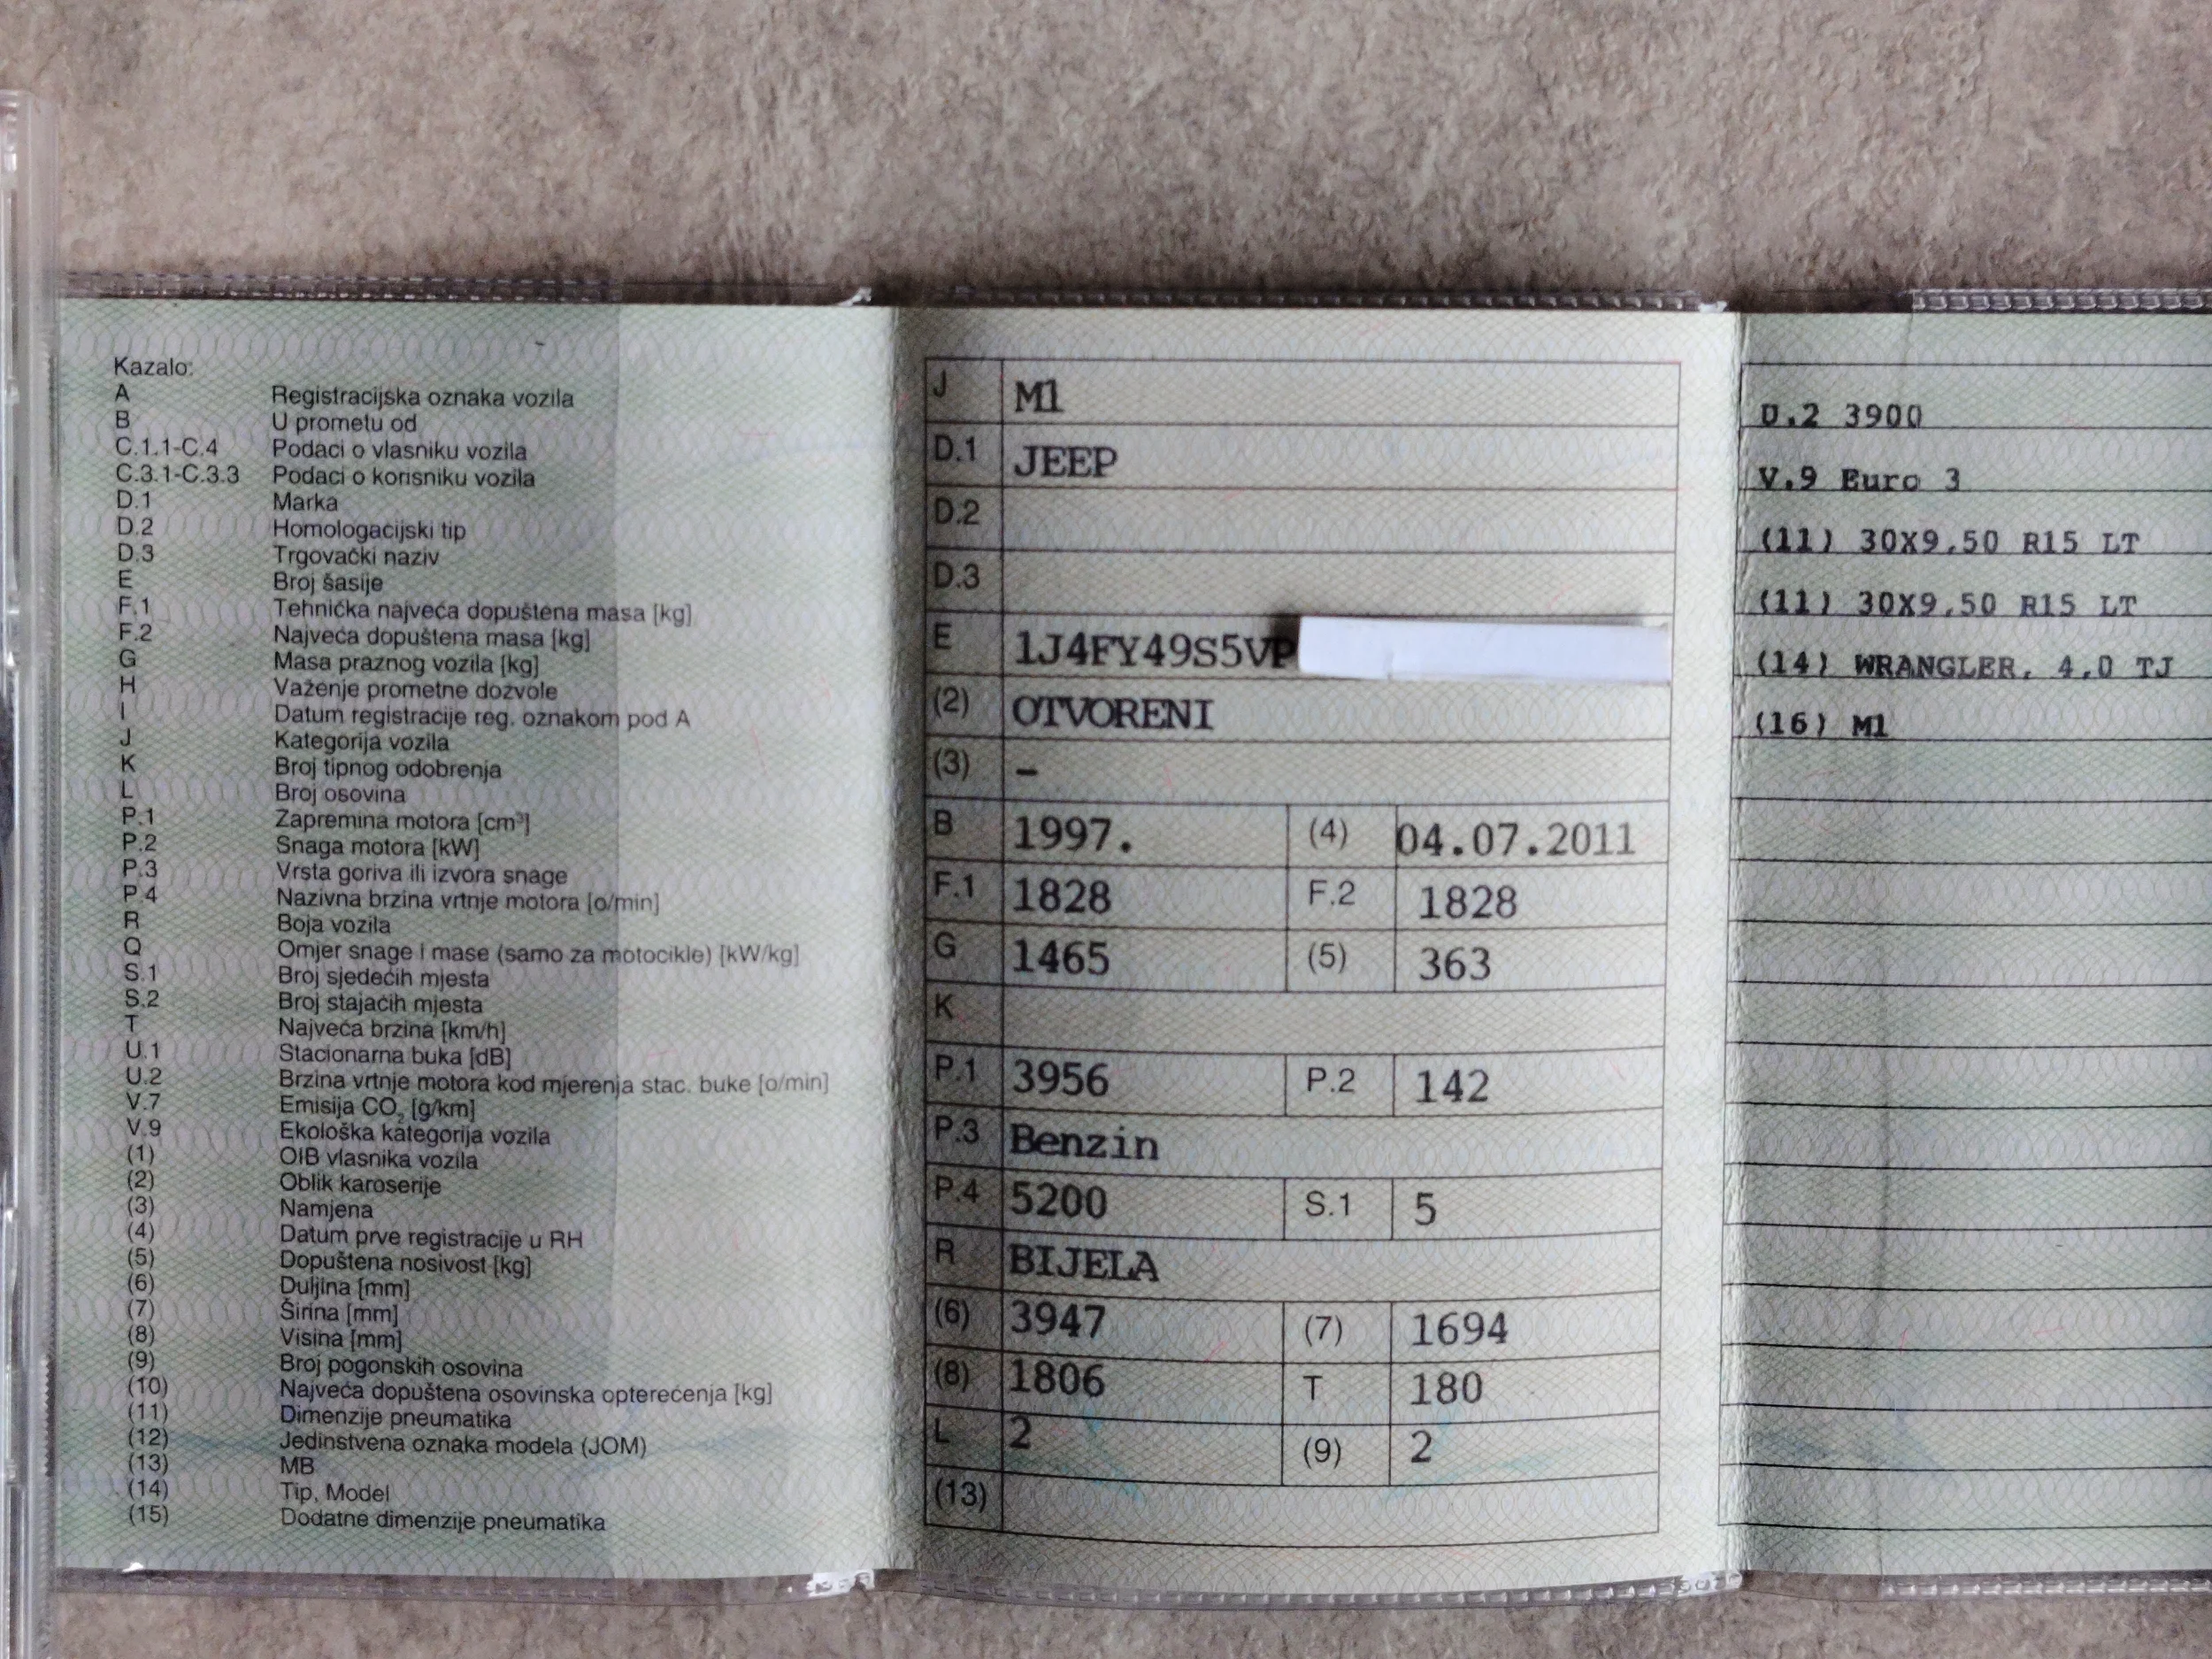 Kazalo:
A Registracijska oznaka vozila
B U prometu od
C.1.1-C.4 Podaci o vlasniku vozila
C.3.1-C.3.3 Podaci o korisniku vozila
D.1 Marka
D.2 Homologacijski tip
D.3 Trgovački naziv
E Broj šasije
F.1 Tehnička najveća dopuštena masa [kg]
F.2 Najveća dopuštena masa [kg]
G Masa praznog vozila [kg]
H Važenje prometne dozvole
I Datum registracije reg. oznakom pod A
J Kategorija vozila
K Broj tipnog odobrenja
L Broj osovina
P.1 Zapremina motora [cm³]
P.2 Snaga motora [kW]
P.3 Vrsta goriva ili izvora snage
P.4 Nazivna brzina vrtnje motora [o/min]
R Boja vozila
Q Omjer snage i mase (samo za motocikle) [kW/kg]
S.1 Broj sjedećih mjesta
S.2 Broj stajaćih mjesta
T Najveća brzina [km/h]
U.1 Stacionarna buka [dB]
U.2 Brzina vrtnje motora kod mjerenja stac. buke [o/min]
V.7 Emisija CO₂ [g/km]
V.9 Ekološka kategorija vozila
(1) OIB vlasnika vozila
(2) Oblik karoserije
(3) Namjena
(4) Datum prve registracije u RH
(5) Dopuštena nosivost [kg]
(6) Duljina [mm]
(7) Širina [mm]
(8) Visina [mm]
(9) Broj pogonskih osovina
(10) Najveća dopuštena osovinska opterećenja [kg]
(11) Dimenzije pneumatika
(12) Jedinstvena oznaka modela (JOM)
(13) MB
(14) Tip, Model
(15) Dodatne dimenzije pneumatika
J M1
D.1 JEEP
D.2
D.3
E 1J4FY49S5VP
(2) OTVORENI
(3) –
B 1997. (4) 04.07.2011
F.1 1828 F.2 1828
G 1465 (5) 363
K
P.1 3956 P.2 142
P.3 Benzin
P.4 5200 S.1 5
R BIJELA
(6) 3947 (7) 1694
(8) 1806 T 180
L 2 (9) 2
(13)
U.2 3900
V.9 Euro 3
(11) 30X9,50 R15 LT
(11) 30X9,50 R15 LT
(14) WRANGLER, 4,0 TJ
(16) M1